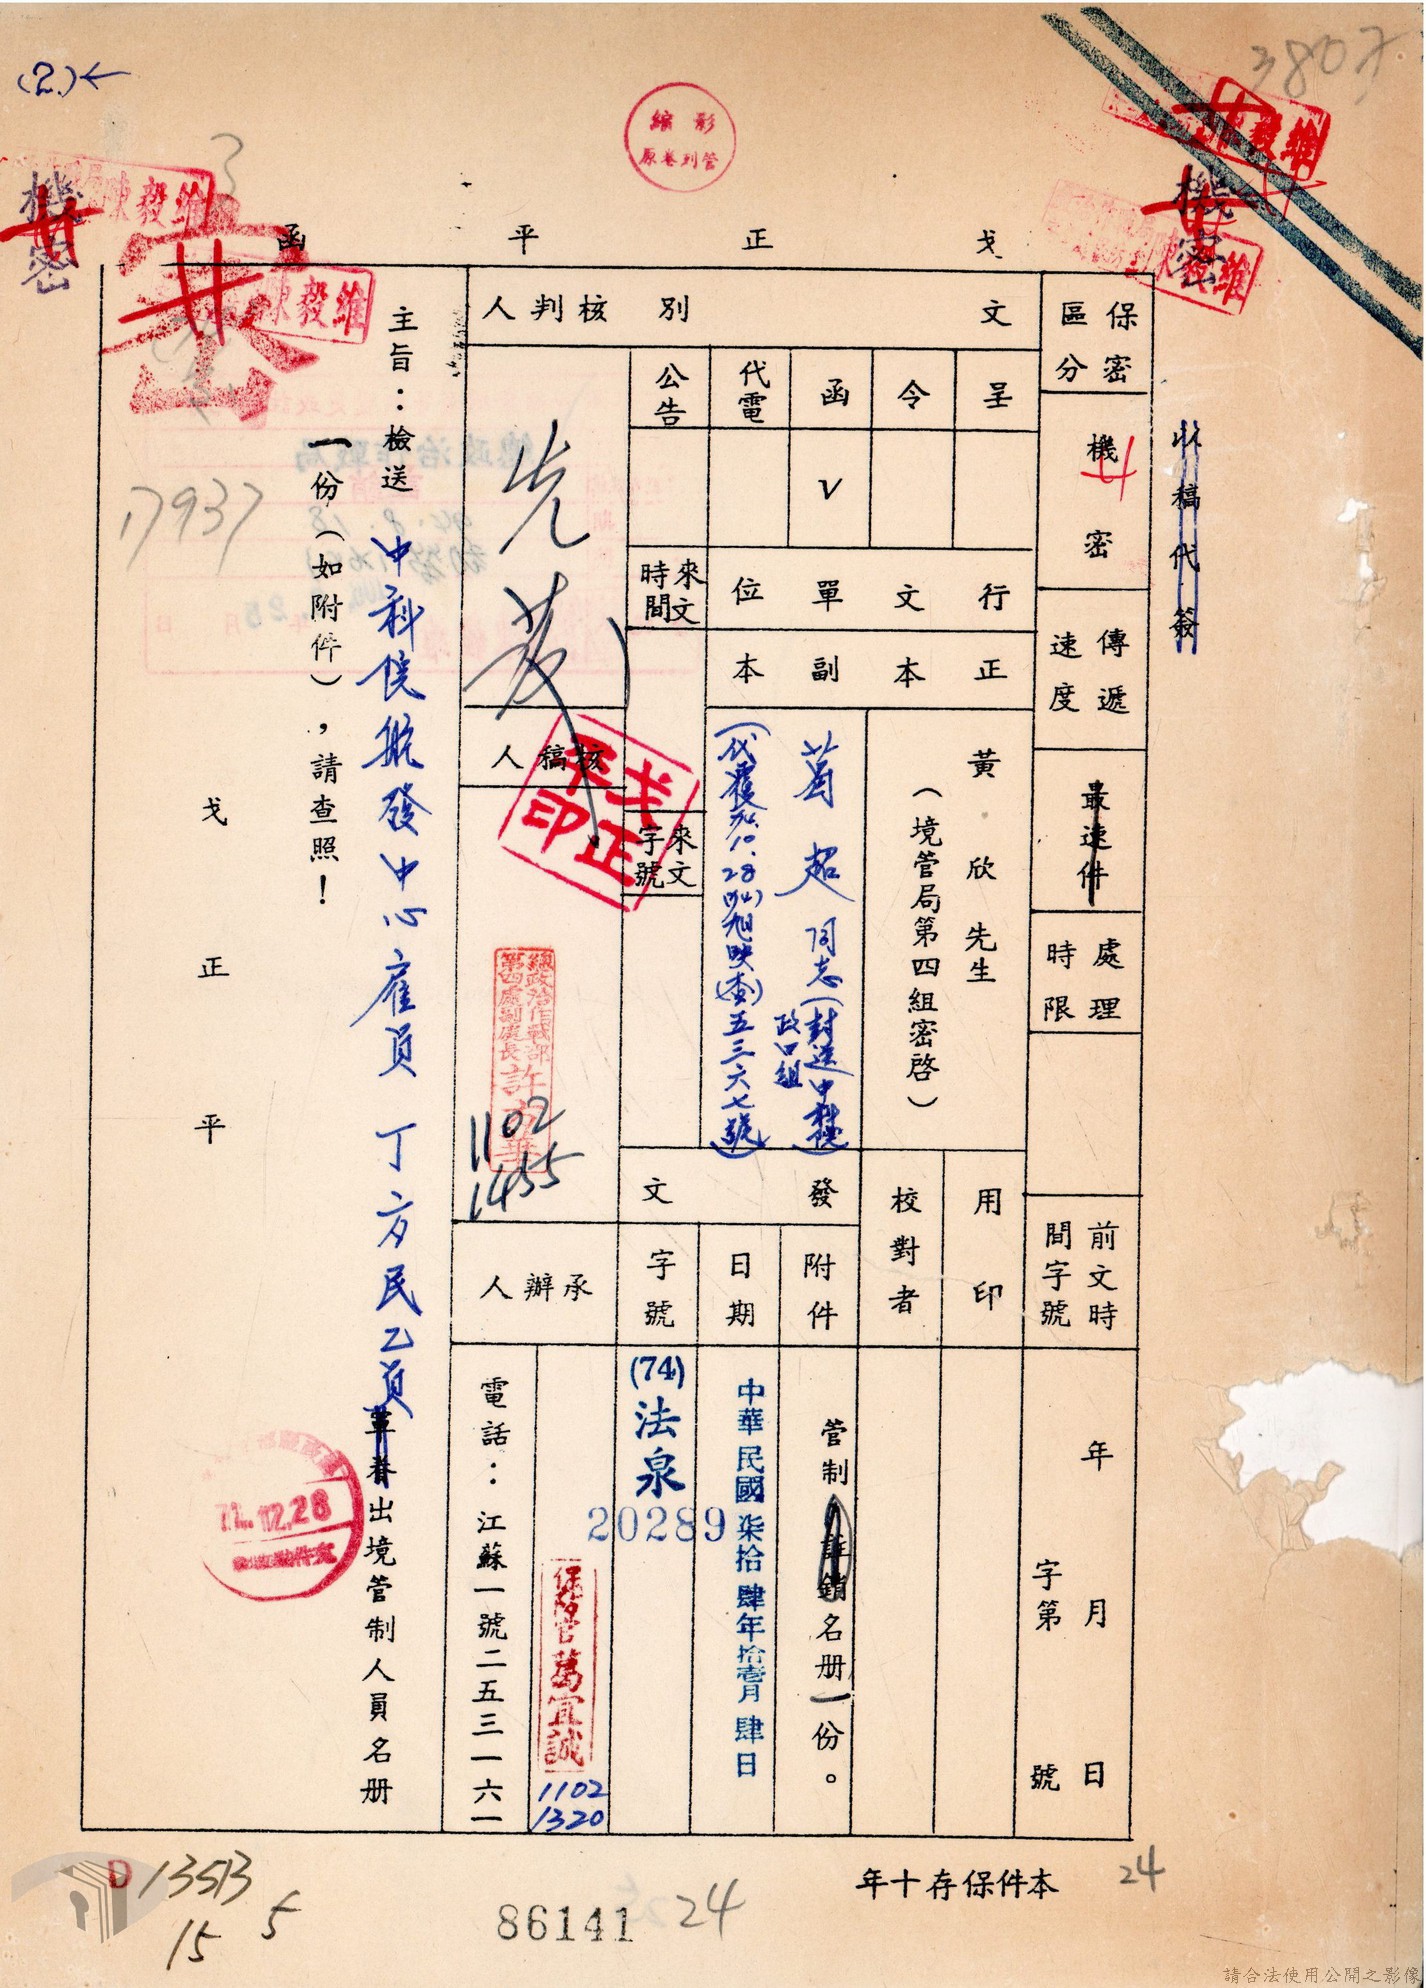 (2)←
3807
影縮
原卷列管
機密
機密
密
陳毅維
陳毅維
陳毅維
陳毅維
戈正平函
以稿代簽
保密區分
機密
傳遞速度
最速件
處理時限
前文時間字號
年月日
字第號
文別
呈
令
函
代電
公告
v
行文單位
正本
副本
黃欣先生
(境管局第四組密啓)
葛超同志(封送中科院政四組)
(代覆74.10.28(74)旭映(查)五三六七號)
來文時間
來文字號
用印
校對者
發文
附件
管制註銷名册一份。
日期
中華民國柒拾肆年拾壹月肆日
字號
(74)法泉
20289
核判人
核稿人
戈正平印
總政治作戰部
第四處副處長許
1102
1455
承辦人
保防官萬宜誠
1102
1320
電話:江蘇一號二五三一六一
主旨:檢送中科院航發中心雇員丁方民乙員軍眷出境管制人員名册
一份(如附件),請查照!
戈正平
17937
總政治作戰局
12.28
D 13513
15
5
86141
24
本件保存十年
24
請合法使用公開之影像